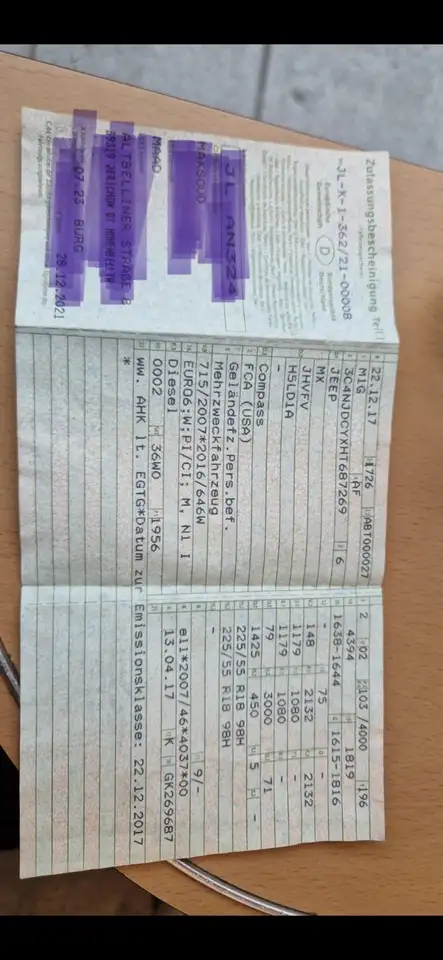 Zulassungsbescheinigung Teil I
JL-X-1-362/21-00008
Europäische Gemeinschaft
D
Bundesrepublik Deutschland
MAAD
28.12.2021
22.12.17 1726 ABT000027
M1G AF
3C4NJDCYXHT687269 6
JEEP
MX
JHVFV
H5LD1A
-
Compass
FCA (USA)
Geländefz.Pers.bef.
Mehrzweckfahrzeug
715/2007*2016/646W
EURO6;W;PI/CI; M, N1 I
Diesel
0002 36W0 1956
WW. AHK lt. EGTG*Datum zur Emissionsklasse: 22.12.2017
*
2 02 103 /4000 196
4394 1819
1638-1644 1615-1816
- 75 -
148 2132 2132
1179 1080 -
1179 1080 -
79 3000 71
1425 450 5 -
225/55 R18 98H
225/55 R18 98H
-
9/-
e11*2007/46*4037*00
13.04.17 K GK269687